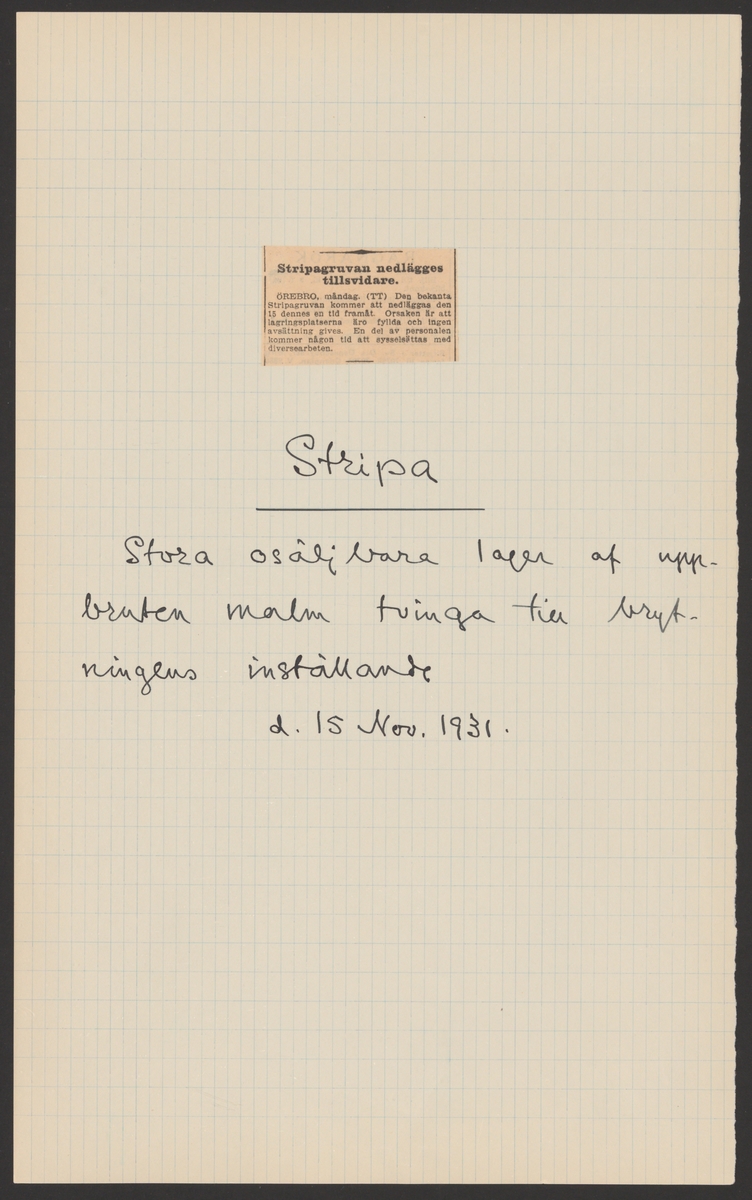 Stripagruvan nedlägges
tillsvidare.
ÖREBRO, måndag. (TT) Den bekanta
Stripagruvan kommer att nedläggas den
15 dennes en tid framåt. Orsaken är att
lagringsplatserna äro fyllda och ingen
avsättning gives. En del av personalen
kommer någon tid att sysselsättas med
diversearbeten.
Stripa
Stora osäljbara lager af upp-
bruten malm tvinga till bryt-
ningens inställande
d. 15 Nov. 1931.